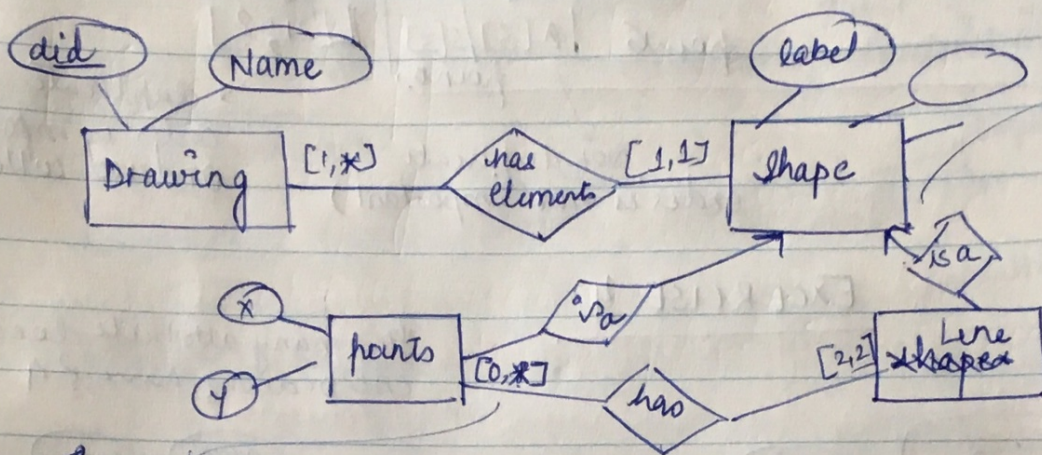 did
Name
label
Drawing
[1,*]
has
elements
[1,1]
Shape
is a
x
y
points
is a
[0,*]
has
[2,2]
Line